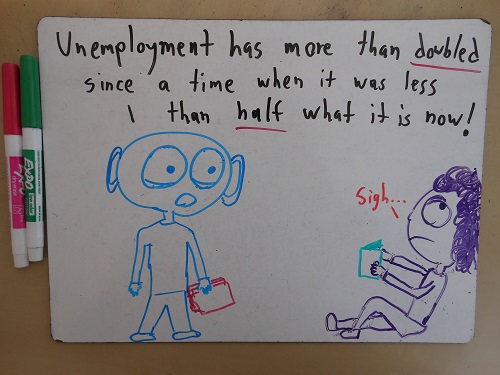 Unemployment has more than doubled
since a time when it was less
than half what it is now!
Sigh...
EXPO